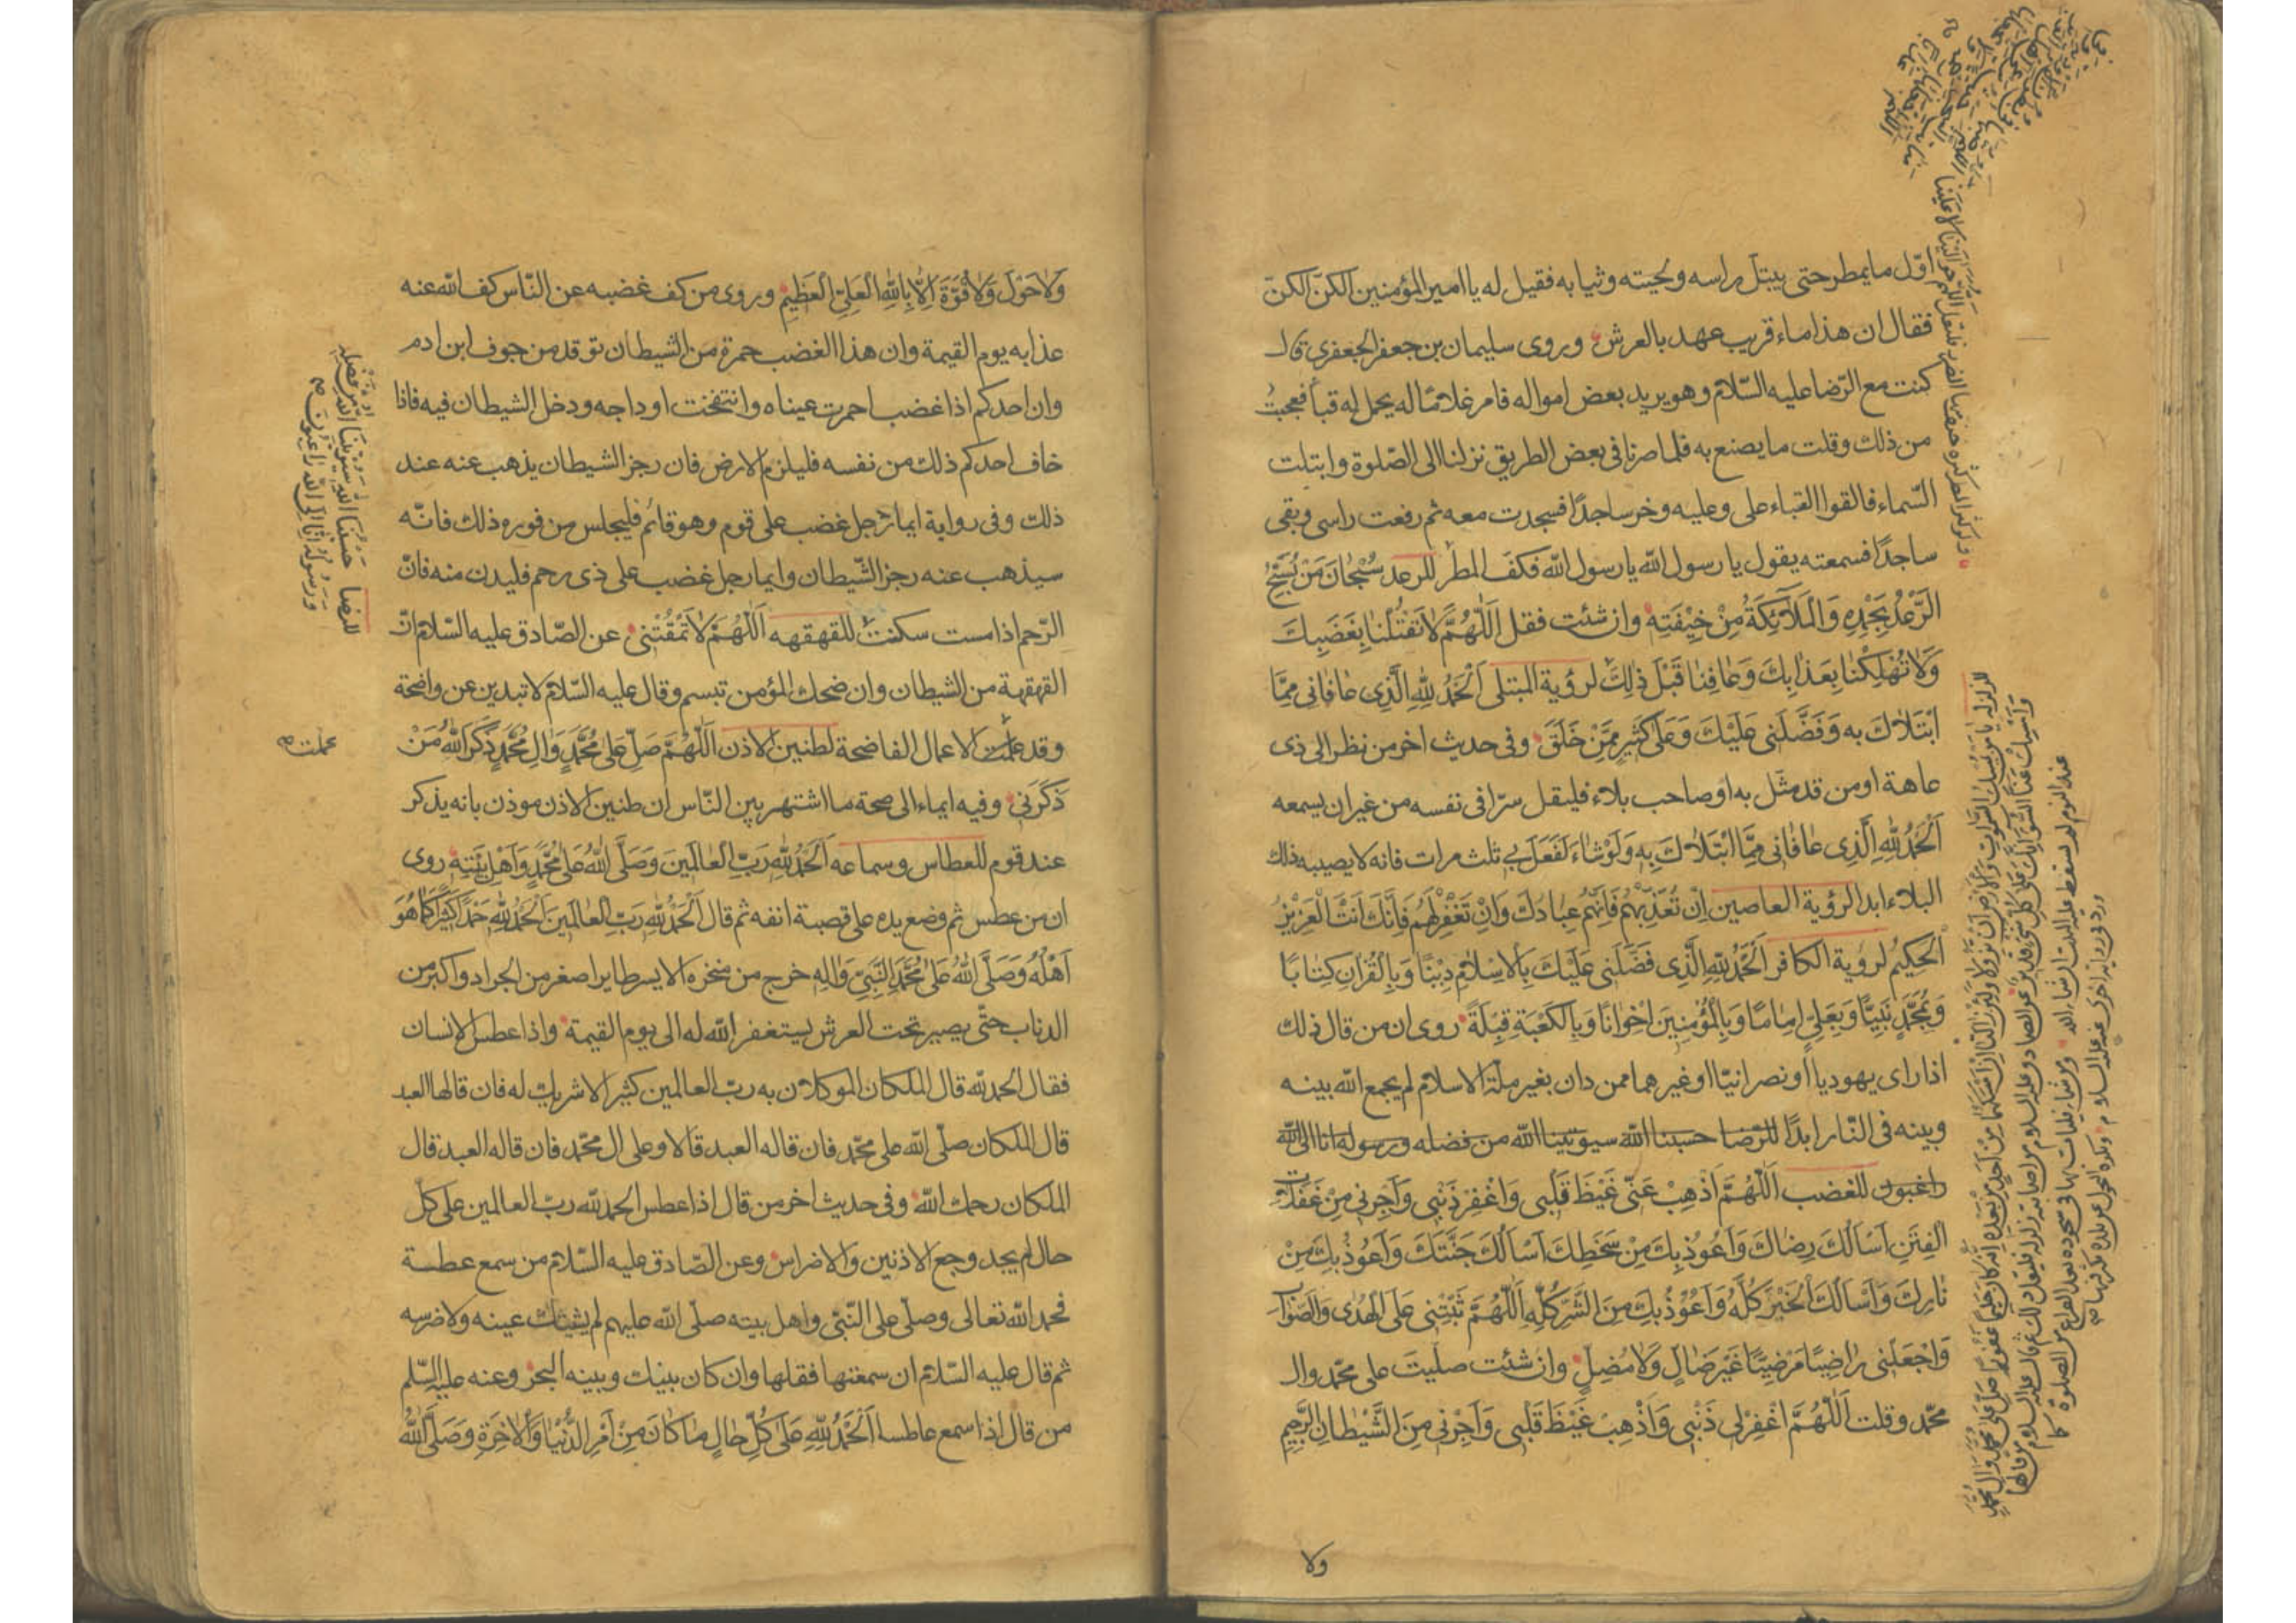 اوّل ما يمطر حتى يبتلّ راسه ولحيته وثيابه فقيل له يا امير المؤمنين الكنّ الكنّ
فقال ان هذا ماء قريب عهد بالعرش وروى سليمان بن جعفر الجعفري قال
كنت مع الرّضا عليه السّلام وهو يريد بعض امواله فامر غلامًا له يحمل له قبأ فعجبتُ
من ذلك وقلت ما يصنع به فلما صرنا فى بعض الطريق نزلنا الى الصّلوة وابتلت
السّماء فالقوا القباء على وعليه وخر ساجدًا فسجدت معه ثم رفعت راسى وبقى
ساجدًا فسمعته يقول يا رسول الله يا رسول الله فكفّ المطر للرعد سُبْحَانَ مَنْ يُسَبِّحُ
الرَّعْدُ بِحَمْدِهِ وَالْمَلَائِكَةُ مِنْ خِيفَتِهِ وان شئت فقل اَللّٰهُمَّ لَا تَقْتُلْنَا بِغَضَبِكَ
وَلَا تُهْلِكْنَا بِعَذَابِكَ وَعَافِنَا قَبْلَ ذٰلِكَ لرؤية المبتلى اَلْحَمْدُ لِلّٰهِ الَّذِى عَافَانِى مِمَّا
ابْتَلَاكَ بِه وَفَضَّلَنِى عَلَيْكَ وَعَلَى كَثِيرٍ مِمَّنْ خَلَقَ وفى حديث اخر من نظر الى ذى
عاهة او من قد مثّل به او صاحب بلاء فليقل سرّا فى نفسه من غير ان يسمعه
اَلْحَمْدُ لِلّٰهِ الَّذِى عَافَانِى مِمَّا ابْتَلَاكَ بِهِ وَلَوْ شَاءَ لَفَعَلَ بِى ثلث مرات فانه لا يصيبه ذلك
البلاء ابدا لرؤية العاصين اِنْ تُعَذِّبْهُمْ فَاِنَّهُمْ عِبَادُكَ وَاِنْ تَغْفِرْ لَهُمْ فَاِنَّكَ اَنْتَ الْعَزِيْزُ
الْحَكِيْمُ لرؤية الكافر اَلْحَمْدُ لِلّٰهِ الَّذِى فَضَّلَنِى عَلَيْكَ بِالْاِسْلَامِ دِيْنًا وَبِالْقُرْاٰنِ كِتَابًا
وَبِمُحَمَّدٍ نَبِيًّا وَبِعَلِيٍّ اِمَامًا وَبِالْمُؤْمِنِيْنَ اِخْوَانًا وَبِالْكَعْبَةِ قِبْلَةً روى ان من قال ذلك
اذا راى يهوديا او نصرانيّا او غيرهما ممن دان بغير ملّة الاسلام لم يجمع الله بينه
وبينه فى النّار ابدًا للرّضا حسبنا الله سيوتينا الله من فضله ورسوله انا الى الله
راغبون للغضب اَللّٰهُمَّ اَذْهِبْ عَنِّى غَيْظَ قَلْبِى وَاغْفِرْ ذَنْبِى وَاَجِرْنِى مِنْ مُضِلَّاتِ
الْفِتَنِ اَسْاَلُكَ رِضَاكَ وَاَعُوذُ بِكَ مِنْ سَخَطِكَ اَسْاَلُكَ جَنَّتَكَ وَاَعُوذُ بِكَ مِنْ
نَارِكَ وَاَسْاَلُكَ الْخَيْرَ كُلَّهُ وَاَعُوْذُ بِكَ مِنَ الشَّرِّ كُلِّهِ اَللّٰهُمَّ ثَبِّتْنِى عَلَى الْهُدَى وَالصَّوَابِ
وَاجْعَلْنِى رَاضِيًا مَرْضِيًّا غَيْرَ ضَالٍّ وَلَا مُضِلٍّ وان شئت صلّيتَ على محمّد وال
محمّد وقلت اَللّٰهُمَّ اغْفِرْ لِى ذَنْبِى وَاَذْهِبْ غَيْظَ قَلْبِى وَاَجِرْنِى مِنَ الشَّيْطَانِ الرَّجِيمِ
ولا
وَلَا حَوْلَ وَلَا قُوَّةَ اِلَّا بِاللهِ الْعَلِيِّ الْعَظِيْمِ وروى من كف غضبه عن النّاس كف الله عنه
عذابه يوم القيمة وان هذا الغضب جمرة من الشيطان توقد من جوف ابن ادم
وان احدكم اذا غضب احمرت عيناه وانتفخت اوداجه ودخل الشيطان فيه فاذا
خاف احدكم ذلك من نفسه فليلزم الارض فان رجز الشيطان يذهب عنه عند
ذلك وفى رواية ايما رجل غضب على قوم وهو قائم فليجلس من فوره ذلك فانّه
سيذهب عنه رجز الشّيطان وايما رجل غضب على ذى رحم فليدن منه فانّ
الرّحم اذا مست سكنت للقهقهه اَللّٰهُمَّ لَا تَمْقُتْنِى عن الصّادق عليه السّلام انّ
القهقهة من الشيطان وان ضحك المؤمن تبسم وقال عليه السّلام لا تبدين عن واضحة
وقد عملت الاعمال الفاضحة لطنين الاذن اَللّٰهُمَّ صَلِّ عَلَى مُحَمَّدٍ وَاٰلِ مُحَمَّدٍ ذَكَرَ اللهُ مَنْ
ذَكَرَنِى وفيه ايماء الى صحة ما اشتهر بين النّاس ان طنين الاذن موذن بانه يذكر
عند قوم للعطاس وسماعه اَلْحَمْدُ لِلّٰهِ رَبِّ الْعَالَمِيْنَ وَصَلَّى اللهُ عَلَى مُحَمَّدٍ وَاَهْلِ بَيْتِهِ روى
ان من عطس ثم وضع يده على قصبة انفه ثم قال اَلْحَمْدُ لِلّٰهِ رَبِّ الْعَالَمِيْنَ اَلْحَمْدُ لِلّٰهِ حَمْدًا كَثِيْرًا كَمَا هُوَ
اَهْلُهُ وَصَلَّى اللهُ عَلَى مُحَمَّدٍ النَّبِيِّ وَاٰلِهِ خرج من منخره الايسر طاير اصغر من الجراد واكبر من
الذباب حتّى يصير تحت العرش يستغفر الله له الى يوم القيمة واذا عطس الانسان
فقال الحمد لله قال الملكان الموكلان به ربّ العالمين كثيرا لا شريك له فان قالها العبد
قال الملكان صلّى الله على محمّد فان قاله العبد قالا وعلى ال محمّد فان قاله العبد قال
الملكان رحمك الله وفى حديث اخر من قال اذا عطس الحمد لله ربّ العالمين على كل
حال لم يجد وجع الاذنين والاضراس وعن الصّادق عليه السّلام من سمع عطسة
فحمد الله تعالى وصلّى على النّبىّ واهل بيته صلّى الله عليهم لم يشتك عينه ولا ضرسه
ثم قال عليه السّلام ان سمعتها فقلها وان كان بينك وبينه البحر وعنه عليه السّلم
من قال اذا سمع عاطسا اَلْحَمْدُ لِلّٰهِ عَلَى كُلِّ حَالٍ مَا كَانَ مِنْ اَمْرِ الدُّنْيَا وَالْاٰخِرَةِ وَصَلَّى اللهُ
للرضا حَسْبُنَا اللهُ سَيُؤْتِيْنَا اللهُ مِنْ فَضْلِهِ
وَرَسُولُهُ اِنَّا اِلَى اللهِ رَاغِبُوْنَ
عملت